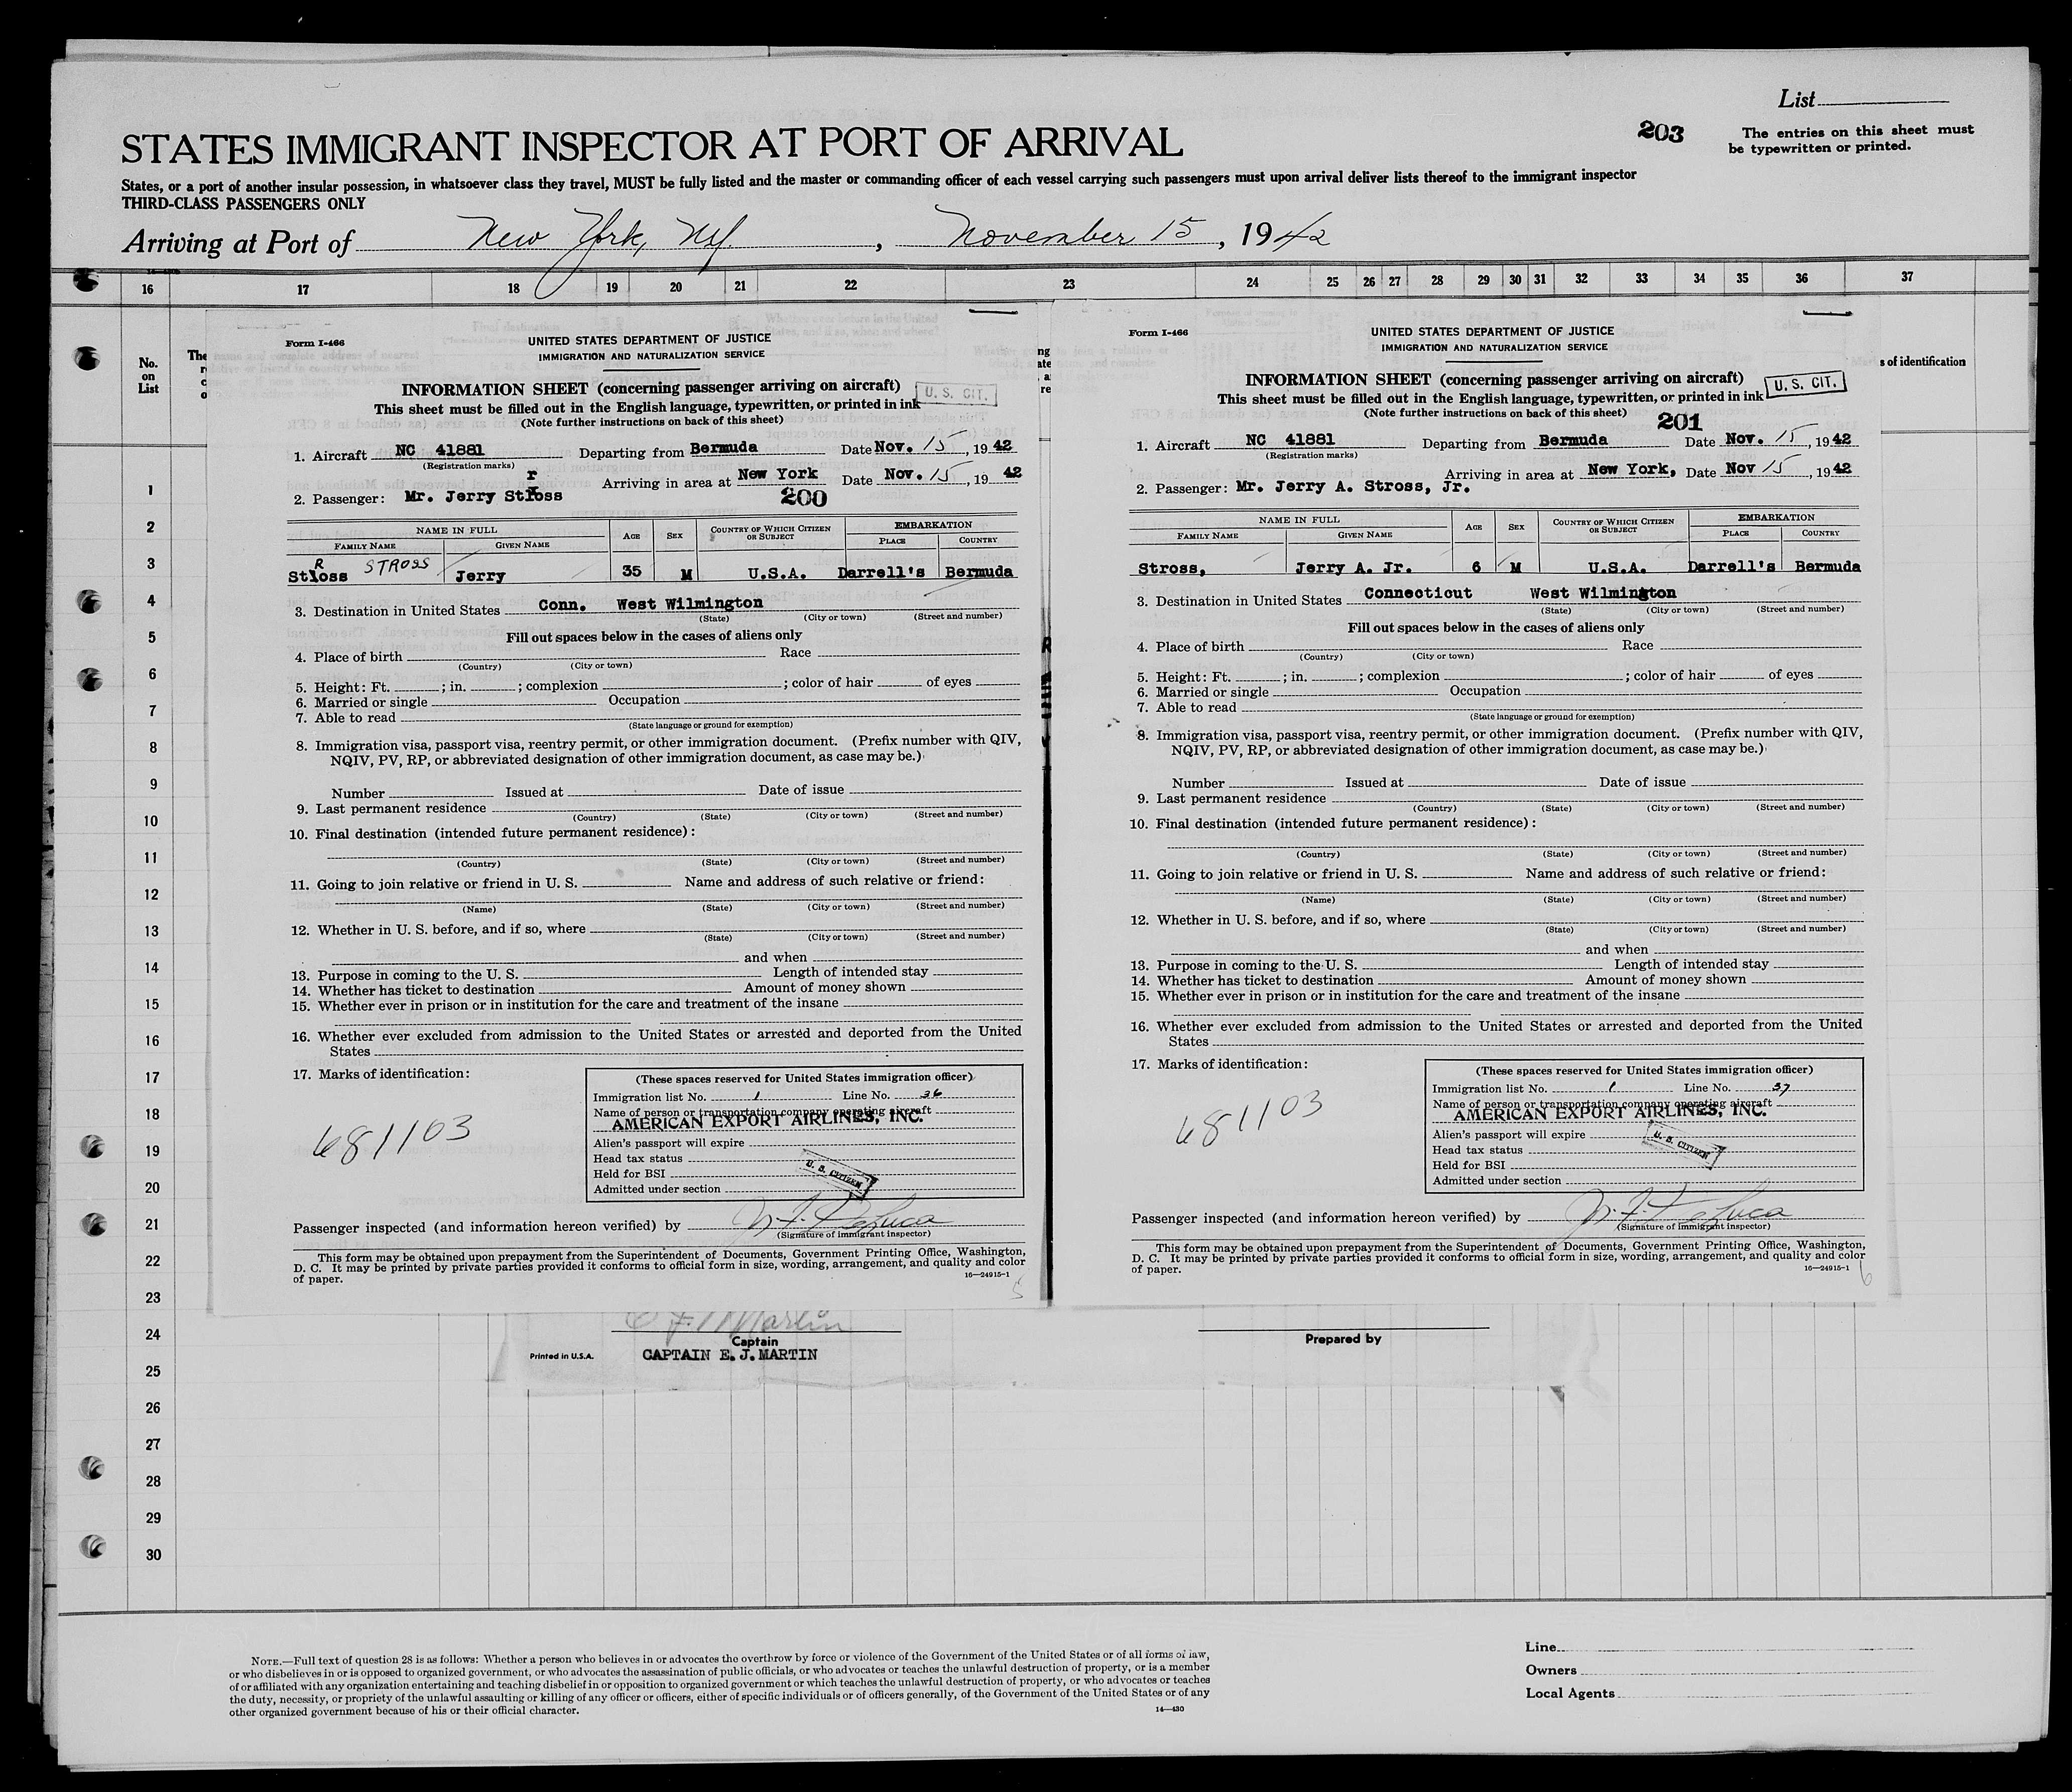 List
203
The entries on this sheet must
be typewritten or printed.
STATES IMMIGRANT INSPECTOR AT PORT OF ARRIVAL
States, or a port of another insular possession, in whatsoever class they travel, MUST be fully listed and the master or commanding officer of each vessel carrying such passengers must upon arrival deliver lists thereof to the immigrant inspector
THIRD-CLASS PASSENGERS ONLY
Arriving at Port of New York, NY. , November 15 , 1942
16 17 18 19 20 21 22 23 24 25 26 27 28 29 30 31 32 33 34 35 36 37
No.
on
List
s of identification
1
2
3
4
5
6
7
8
9
10
11
12
13
14
15
16
17
18
19
20
21
22
23
24
25
26
27
28
29
30
Form I-466
UNITED STATES DEPARTMENT OF JUSTICE
IMMIGRATION AND NATURALIZATION SERVICE
INFORMATION SHEET (concerning passenger arriving on aircraft)
U. S. CIT.
This sheet must be filled out in the English language, typewritten, or printed in ink
(Note further instructions on back of this sheet)
1. Aircraft NC 41881 Departing from Bermuda Date Nov. 15, 1942
(Registration marks)
Arriving in area at New York Date Nov. 15, 1942
2. Passenger: Mr. Jerry Stross
200
NAME IN FULL AGE SEX COUNTRY OF WHICH CITIZEN OR SUBJECT EMBARKATION
FAMILY NAME GIVEN NAME PLACE COUNTRY
Stross STROSS Jerry 35 M U.S.A. Darrell's Bermuda
3. Destination in United States Conn. West Wilmington
(State) (City or town) (Street and number)
Fill out spaces below in the cases of aliens only
4. Place of birth Race
(Country) (City or town)
5. Height: Ft. ; in. ; complexion ; color of hair of eyes
6. Married or single Occupation
7. Able to read
(State language or ground for exemption)
8. Immigration visa, passport visa, reentry permit, or other immigration document. (Prefix number with QIV,
NQIV, PV, RP, or abbreviated designation of other immigration document, as case may be.)
Number Issued at Date of issue
9. Last permanent residence
(Country) (State) (City or town) (Street and number)
10. Final destination (intended future permanent residence):
(Country) (State) (City or town) (Street and number)
11. Going to join relative or friend in U. S. Name and address of such relative or friend:
(Name) (State) (City or town) (Street and number)
12. Whether in U. S. before, and if so, where
(State) (City or town) (Street and number)
and when
13. Purpose in coming to the U. S. Length of intended stay
14. Whether has ticket to destination Amount of money shown
15. Whether ever in prison or in institution for the care and treatment of the insane
16. Whether ever excluded from admission to the United States or arrested and deported from the United
States
17. Marks of identification:
681103
(These spaces reserved for United States immigration officer)
Immigration list No. 1 Line No. 36
Name of person or transportation company operating aircraft
AMERICAN EXPORT AIRLINES, INC.
Alien's passport will expire
Head tax status
Held for BSI
U. S. CITIZEN
Admitted under section
Passenger inspected (and information hereon verified) by
(Signature of immigrant inspector)
This form may be obtained upon prepayment from the Superintendent of Documents, Government Printing Office, Washington,
D. C. It may be printed by private parties provided it conforms to official form in size, wording, arrangement, and quality and color
of paper.
16—24915-1
5
Form I-466
UNITED STATES DEPARTMENT OF JUSTICE
IMMIGRATION AND NATURALIZATION SERVICE
INFORMATION SHEET (concerning passenger arriving on aircraft)
U. S. CIT.
This sheet must be filled out in the English language, typewritten, or printed in ink
(Note further instructions on back of this sheet)
201
1. Aircraft NC 41881 Departing from Bermuda Date Nov. 15, 1942
(Registration marks)
Arriving in area at New York, Date Nov 15, 1942
2. Passenger: Mr. Jerry A. Stross, Jr.
NAME IN FULL AGE SEX COUNTRY OF WHICH CITIZEN OR SUBJECT EMBARKATION
FAMILY NAME GIVEN NAME PLACE COUNTRY
Stross, Jerry A. Jr. 6 M U.S.A. Darrell's Bermuda
3. Destination in United States Connecticut West Wilmington
(State) (City or town) (Street and number)
Fill out spaces below in the cases of aliens only
4. Place of birth Race
(Country) (City or town)
5. Height: Ft. ; in. ; complexion ; color of hair of eyes
6. Married or single Occupation
7. Able to read
(State language or ground for exemption)
8. Immigration visa, passport visa, reentry permit, or other immigration document. (Prefix number with QIV,
NQIV, PV, RP, or abbreviated designation of other immigration document, as case may be.)
Number Issued at Date of issue
9. Last permanent residence
(Country) (State) (City or town) (Street and number)
10. Final destination (intended future permanent residence):
(Country) (State) (City or town) (Street and number)
11. Going to join relative or friend in U. S. Name and address of such relative or friend:
(Name) (State) (City or town) (Street and number)
12. Whether in U. S. before, and if so, where
(State) (City or town) (Street and number)
and when
13. Purpose in coming to the U. S. Length of intended stay
14. Whether has ticket to destination Amount of money shown
15. Whether ever in prison or in institution for the care and treatment of the insane
16. Whether ever excluded from admission to the United States or arrested and deported from the United
States
17. Marks of identification:
681103
(These spaces reserved for United States immigration officer)
Immigration list No. 1 Line No. 37
Name of person or transportation company operating aircraft
AMERICAN EXPORT AIRLINES, INC.
Alien's passport will expire
U. S. CITIZEN
Head tax status
Held for BSI
Admitted under section
Passenger inspected (and information hereon verified) by
(Signature of immigrant inspector)
This form may be obtained upon prepayment from the Superintendent of Documents, Government Printing Office, Washington,
D. C. It may be printed by private parties provided it conforms to official form in size, wording, arrangement, and quality and color
of paper.
16—24915-1
6
Captain
Printed in U.S.A. CAPTAIN E. J. MARTIN
Prepared by
NOTE.—Full text of question 28 is as follows: Whether a person who believes in or advocates the overthrow by force or violence of the Government of the United States or of all forms of law,
or who disbelieves in or is opposed to organized government, or who advocates the assassination of public officials, or who advocates or teaches the unlawful destruction of property, or is a member
of or affiliated with any organization entertaining and teaching disbelief in or opposition to organized government or which teaches the unlawful destruction of property, or who advocates or teaches
the duty, necessity, or propriety of the unlawful assaulting or killing of any officer or officers, either of specific individuals or of officers generally, of the Government of the United States or of any
other organized government because of his or their official character.
14—430
Line
Owners
Local Agents